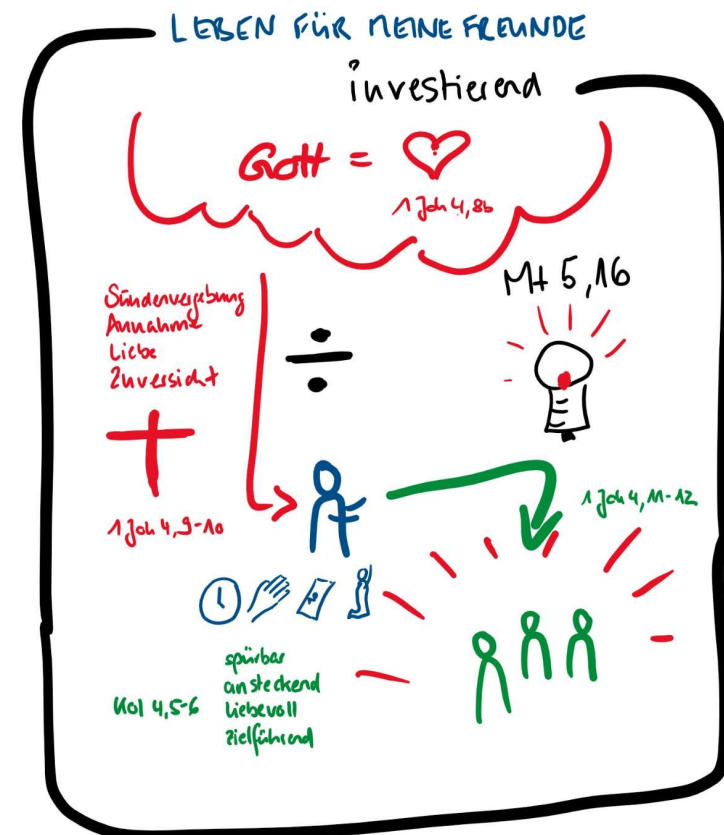 LEBEN FÜR MEINE FREUNDE
investierend
Gott =
1 Joh 4,8b
Mt 5,16
Sündenvergebung
Annahme
Liebe
Zuversicht
1 Joh 4,9-10
1 Joh 4,11-12
Kol 4,5-6
spürbar
ansteckend
liebevoll
zielführend